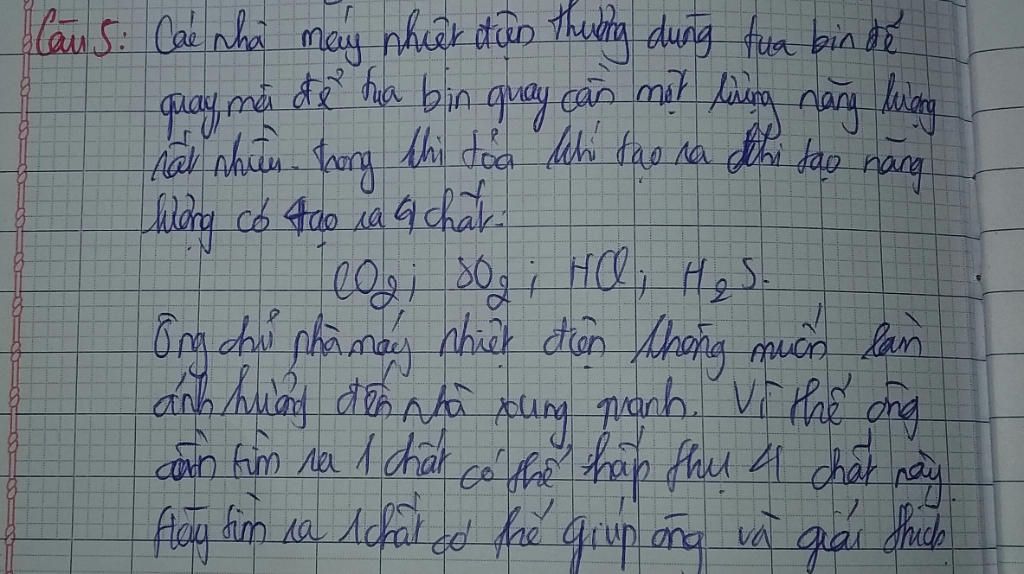 Câu 5: Các nhà máy nhiệt điện thường dùng tua bin để
quay mà để tua bin quay cần một lượng năng lượng
rất nhiều. trong khi tỏa khí tạo ra khi tạo năng
lượng có tạo ra 4 chất:
CO2; SO2; HCl; H2S.
Ông chủ nhà máy nhiệt điện không muốn làm
ảnh hưởng đến nhà xung quanh. Vì thế ông
cần tìm ra 1 chất có thể hấp thụ 4 chất này.
Hãy tìm ra 1 chất có thể giúp ông và giải thích